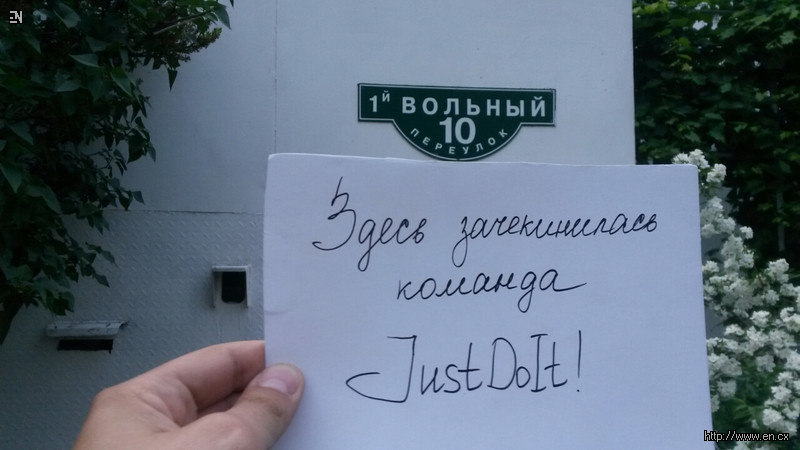 EN
1й ВОЛЬНЫЙ
10
ПЕРЕУЛОК
Здесь зачекинилась
команда
JustDoIt!
http://www.en.cx